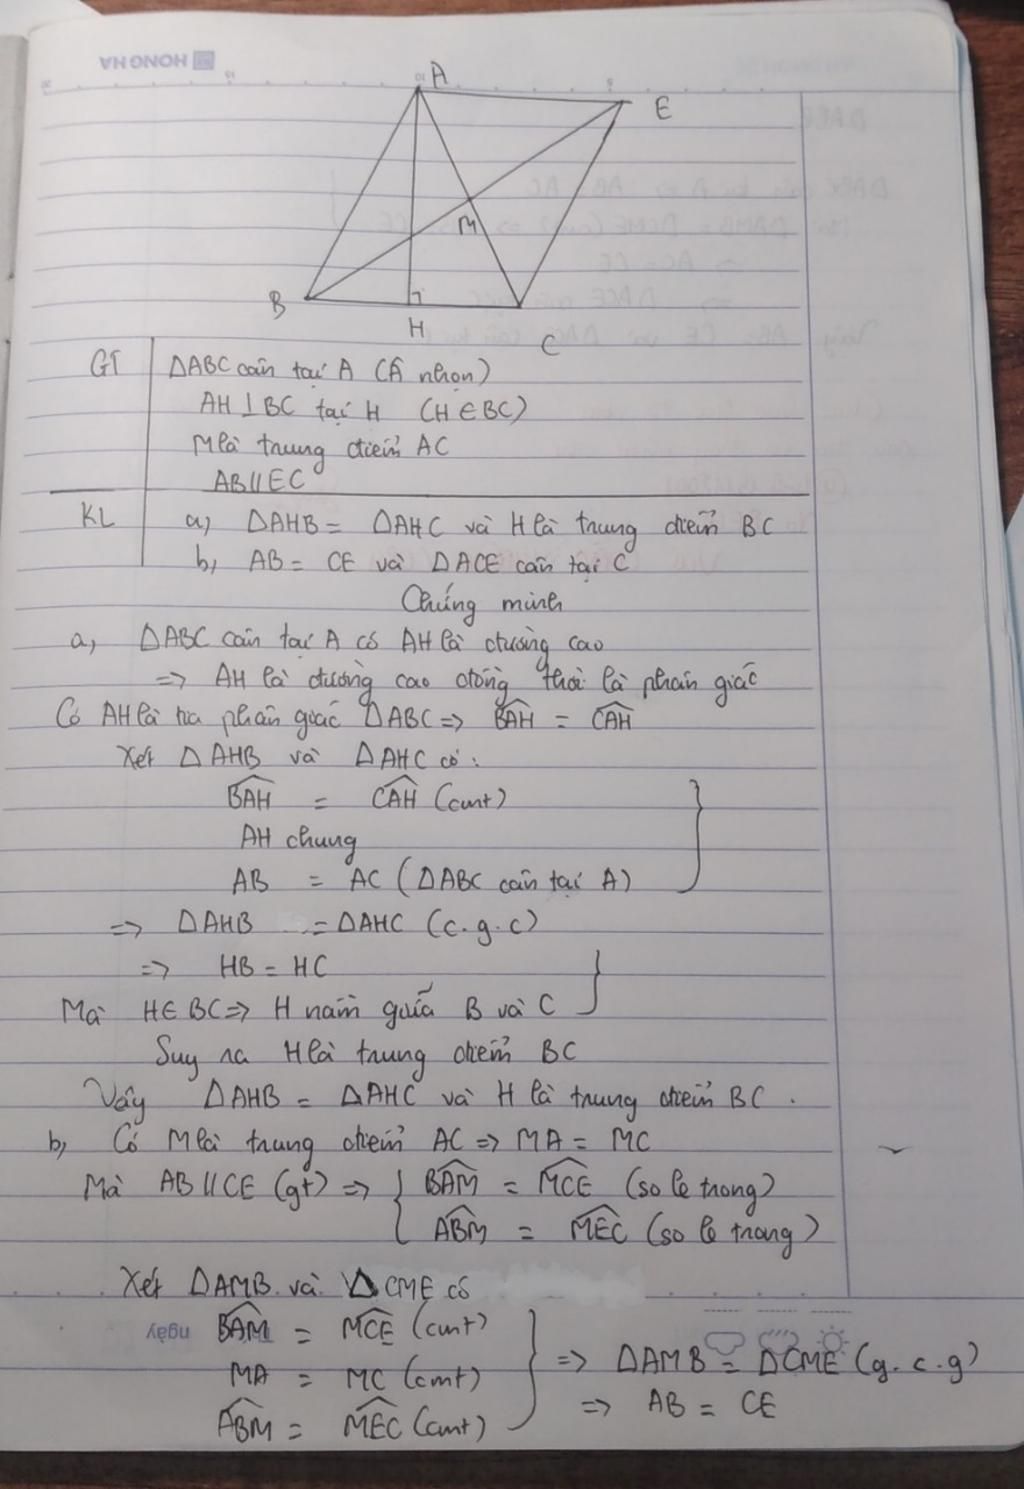 HONG HA
A
E
M
B
H
C
GT ΔABC cân tại A (Â nhọn)
AH ⊥ BC tại H (H ∈ BC)
M là trung điểm AC
AB // EC
KL a, ΔAHB = ΔAHC và H là trung điểm BC
b, AB = CE và ΔACE cân tại C
Chứng minh
a, ΔABC cân tại A có AH là đường cao
=> AH là đường cao đồng thời là phân giác
Có AH là tia phân giác ΔABC => BAH = CAH
Xét ΔAHB và ΔAHC có:
BAH = CAH (cmt)
AH chung
AB = AC (ΔABC cân tại A)
=> ΔAHB = ΔAHC (c.g.c)
=> HB = HC
Mà H ∈ BC => H nằm giữa B và C
Suy ra H là trung điểm BC
Vậy ΔAHB = ΔAHC và H là trung điểm BC.
b, Có M là trung điểm AC => MA = MC
Mà AB // CE (gt) => { BAM = MCE (so le trong)
ABM = MEC (so le trong)
Xét ΔAMB và ΔCME có
BAM = MCE (cmt)
MA = MC (cmt) => ΔAMB = ΔCME (g.c.g)
ABM = MEC (cmt) => AB = CE
Ngày